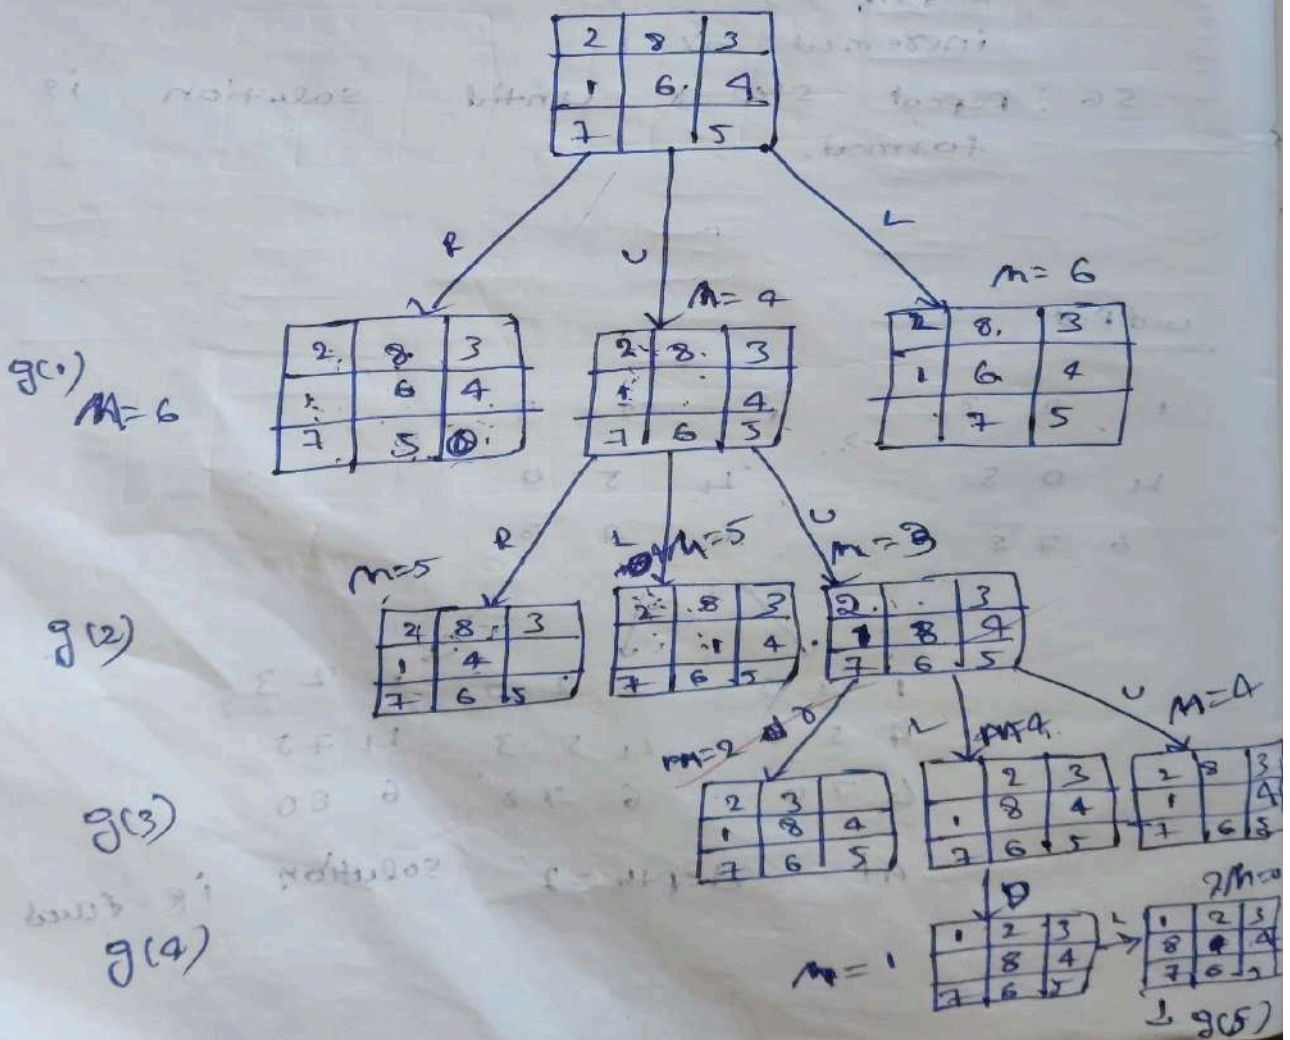 2 8 3
1 6 4
7 5
R U L
g(1)
M=6
2 8 3
1 6 4
7 5
M=4
2 8 3
1 4
7 6 5
M=6
2 8 3
1 6 4
7 5
R L U
g(2)
M=5
2 8 3
1 4
7 6 5
M=5
2 8 3
1 4
7 6 5
M=3
2 3
1 8 4
7 6 5
L U
g(3)
M=2
2 3
1 8 4
7 6 5
M=4
2 3
1 8 4
7 6 5
M=4
2 8 3
1 4
7 6 5
D
g(4)
M=1
1 2 3
8 4
7 6 5
L
M=0
1 2 3
8 4
7 6 5
g(5)